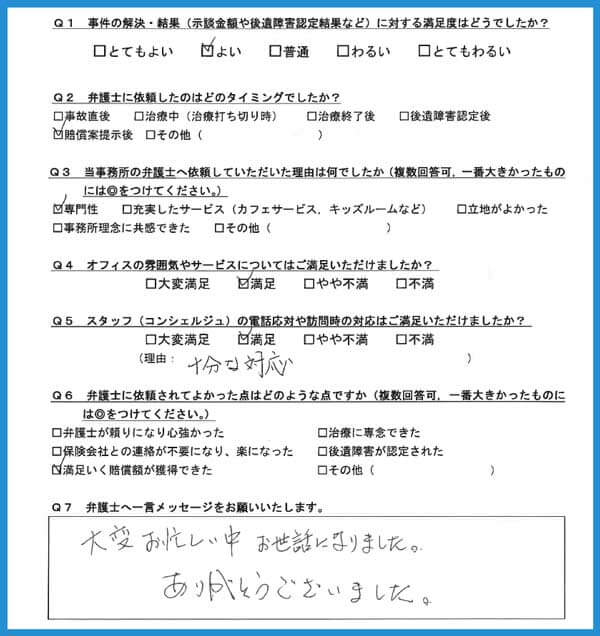 Q1 事件の解決・結果（示談金額や後遺障害認定結果など）に対する満足度はどうでしたか？
□とてもよい ☑よい □普通 □わるい □とてもわるい
Q2 弁護士に依頼したのはどのタイミングでしたか？
□事故直後 □治療中（治療打ち切り時） □治療終了後 □後遺障害認定後
☑賠償案提示後 □その他（ ）
Q3 当事務所の弁護士へ依頼していただいた理由は何でしたか（複数回答可，一番大きかったもの
には◎をつけてください。）
☑専門性 □充実したサービス（カフェサービス，キッズルームなど） □立地がよかった
□事務所理念に共感できた □その他（ ）
Q4 オフィスの雰囲気やサービスについてはご満足いただけましたか？
□大変満足 ☑満足 □やや不満 □不満
Q5 スタッフ（コンシェルジュ）の電話応対や訪問時の対応はご満足いただけましたか？
□大変満足 ☑満足 □やや不満 □不満
（理由： 十分な対応 ）
Q6 弁護士に依頼されてよかった点はどのような点ですか（複数回答可，一番大きかったものに
は◎をつけてください。）
□弁護士が頼りになり心強かった □治療に専念できた
□保険会社との連絡が不要になり、楽になった □後遺障害が認定された
☑満足いく賠償額が獲得できた □その他（ ）
Q7 弁護士へ一言メッセージをお願いいたします。
大変お忙しい中 お世話になりました。
ありがとうございました。